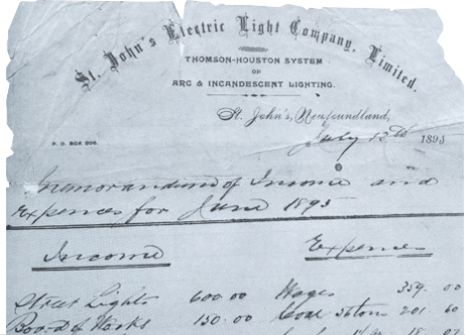 St. John's Electric Light Company, Limited.
THOMSON-HOUSTON SYSTEM
OF
ARC & INCANDESCENT LIGHTING.
St. John's, Newfoundland,
July 13th 1895
P. O. BOX 206.
Memorandum of Income and
Expences for June 1895
Income Expences
Street Lights 600.00 Wages 359.00
Board of Works 150.00 Coal 56 tons 201.60